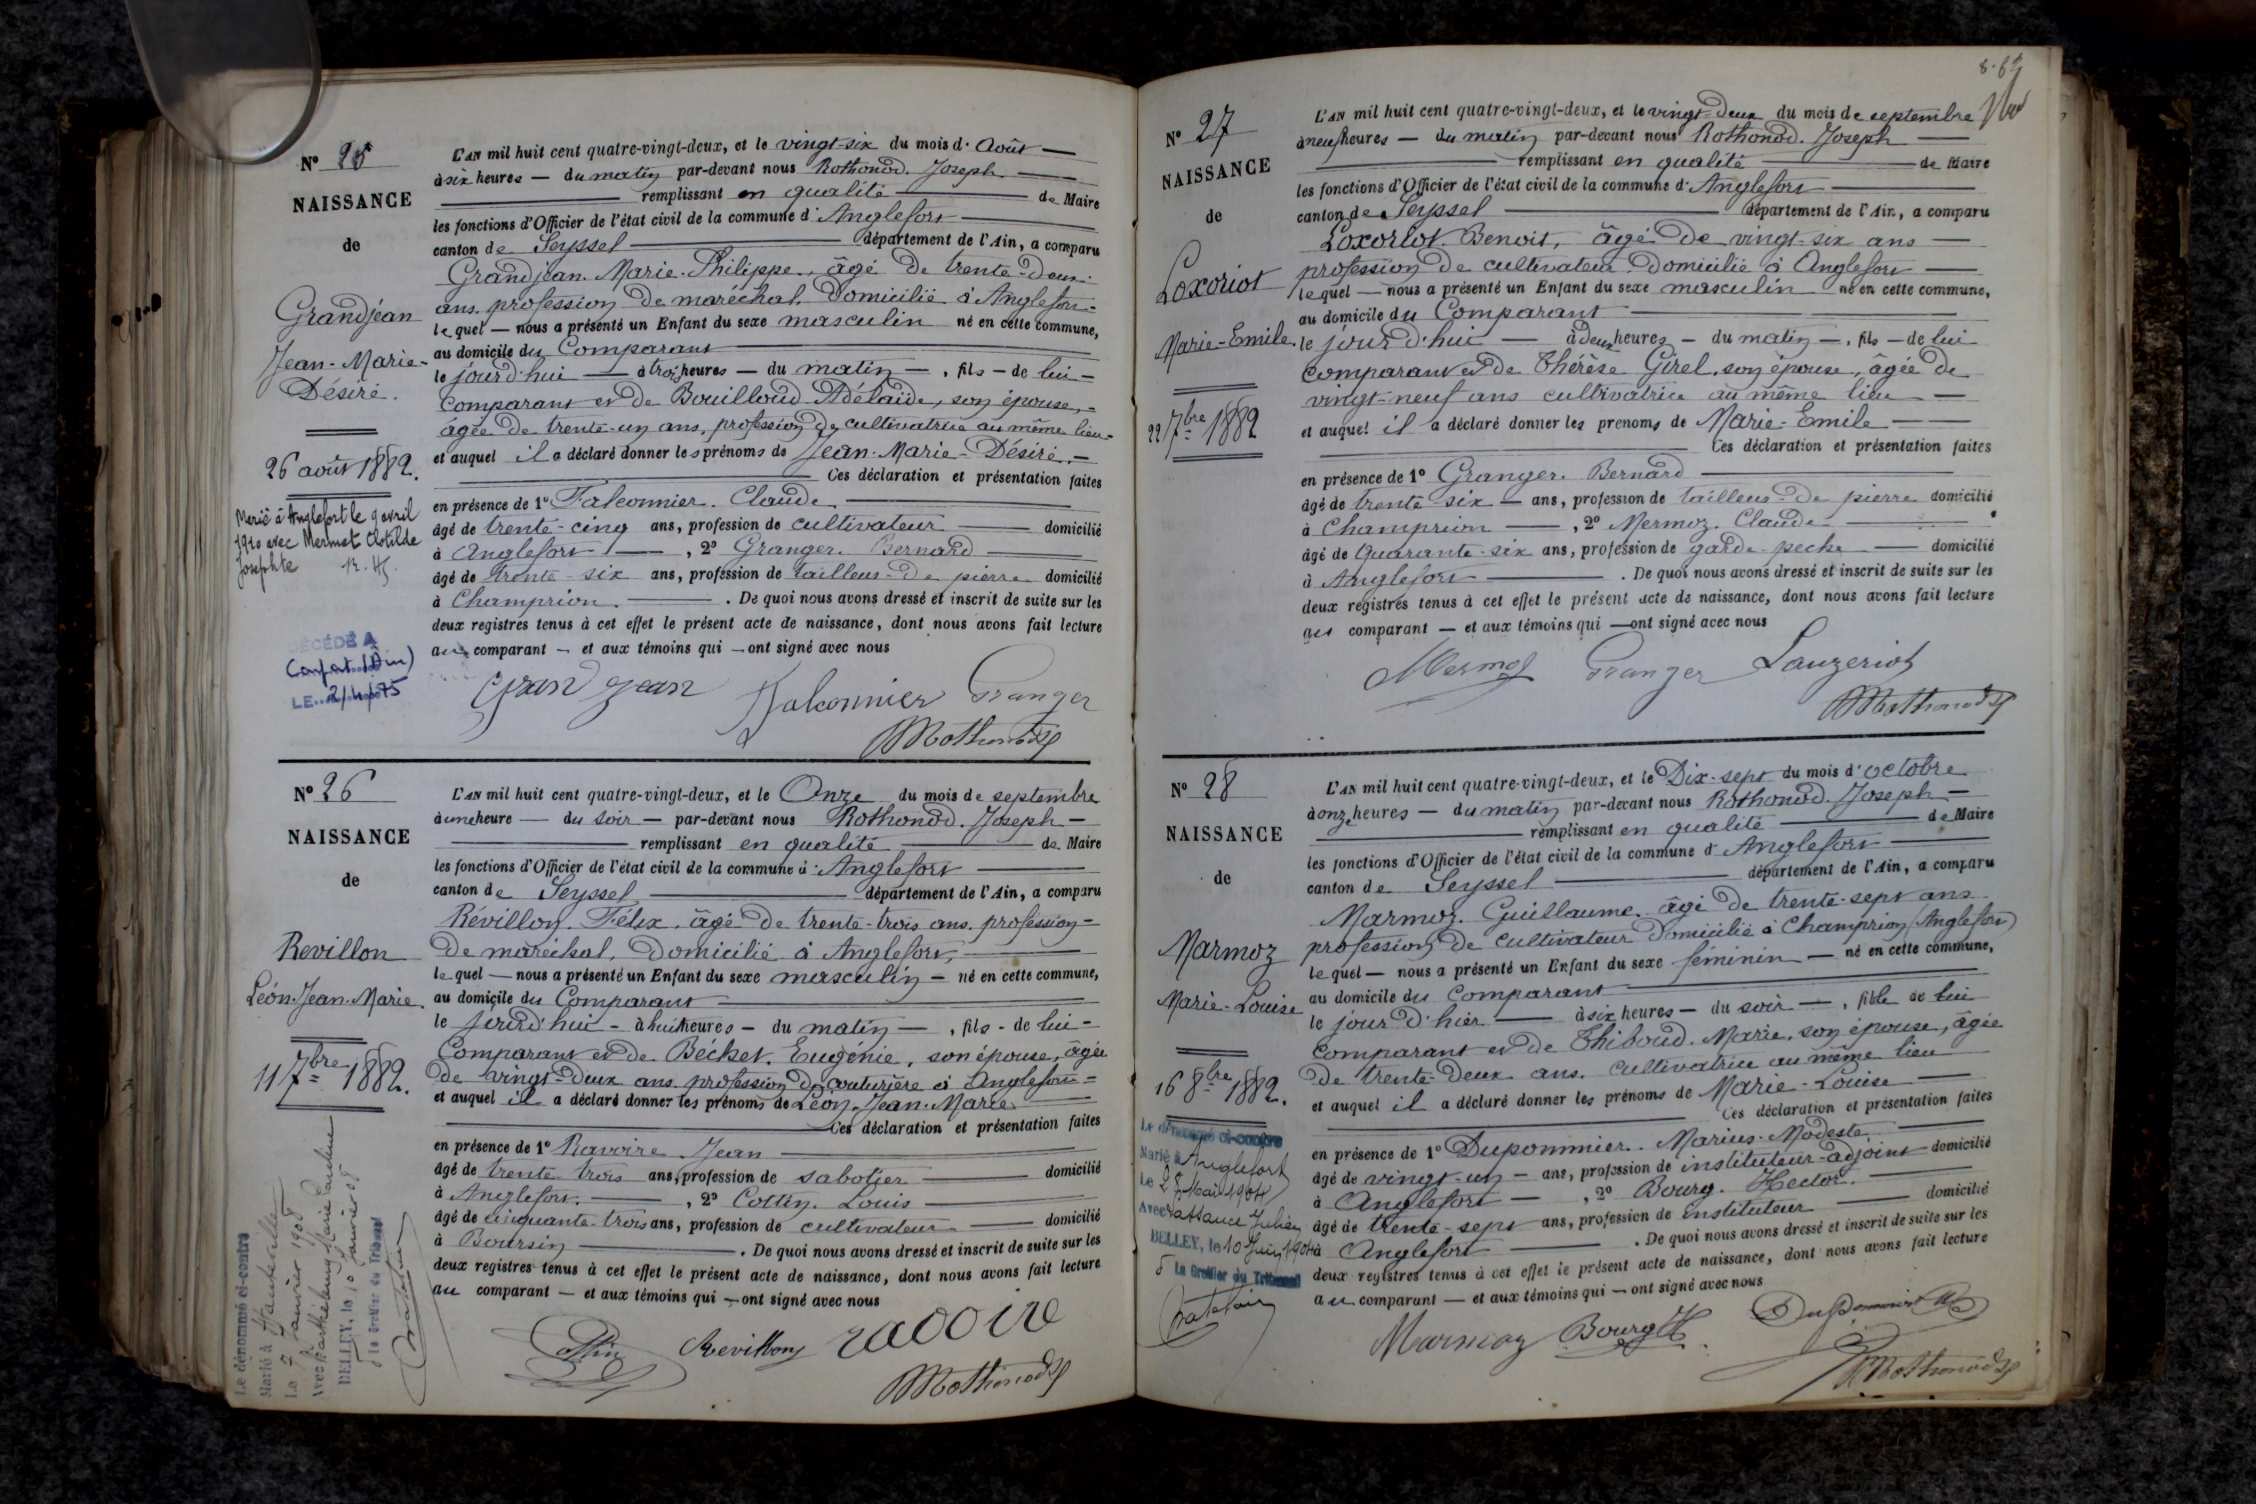 N° 25
NAISSANCE
de
Grandjean
Jean-Marie-
Désiré.
26 août 1882.
Marié à Anglefort le 9 avril
1910 avec Mermet Clotilde
Josephte
DÉCÉDÉ A
LE 2/4/75
L'AN mil huit cent quatre-vingt-deux, et le vingt-six du mois d'Août
à six heures du matin par-devant nous Rothonod. Joseph
remplissant en qualité de Maire
les fonctions d'Officier de l'état civil de la commune d'Anglefort
canton de Seyssel département de l'Ain, a comparu
Grandjean. Marie-Philippe, âgé de trente-deux
ans, profession de maréchal. domicilié à Anglefort
lequel nous a présenté un Enfant du sexe masculin né en cette commune,
au domicile du Comparant
le jourd'hui à trois heures du matin, fils de lui
comparant et de Bouilloud Adélaïde, son épouse,
âgée de trente-un ans, profession de cultivatrice au même lieu
et auquel il a déclaré donner les prénoms de Jean-Marie-Désiré.
Ces déclaration et présentation faites
en présence de 1° Falconnier. Claude
âgé de trente-cinq ans, profession de cultivateur domicilié
à Anglefort, 2° Granger. Bernard
âgé de trente-six ans, profession de tailleur de pierre domicilié
à Champrion. De quoi nous avons dressé et inscrit de suite sur les
deux registres tenus à cet effet le présent acte de naissance, dont nous avons fait lecture
au comparant et aux témoins qui ont signé avec nous
Grandjean Falconnier Granger
Rothonod
N° 26
NAISSANCE
de
Revillon
Léon-Jean-Marie.
11 7bre 1882.
Le dénommé ci-contre
Marié à Hauteville
Le 7 janvier 1908
BELLEY, le 10 janvier 08
Le Greffier du Tribunal
L'AN mil huit cent quatre-vingt-deux, et le Onze du mois de septembre
à une heure du soir par-devant nous Rothonod. Joseph
remplissant en qualité de Maire
les fonctions d'Officier de l'état civil de la commune d'Anglefort
canton de Seyssel département de l'Ain, a comparu
Révillon. Félix, âgé de trente-trois ans, profession
de maréchal, domicilié à Anglefort,
lequel nous a présenté un Enfant du sexe masculin né en cette commune,
au domicile du Comparant
le jourd'hui à huit heures du matin, fils de lui
Comparant et de Béchet. Eugénie, son épouse, âgée
de vingt-deux ans, profession de couturière à Anglefort
et auquel il a déclaré donner les prénoms de Léon-Jean-Marie
Ces déclaration et présentation faites
en présence de 1° Ravoire Jean
âgé de trente trois ans, profession de sabotier domicilié
à Anglefort, 2° Cottin. Louis
âgé de cinquante-trois ans, profession de cultivateur domicilié
à Boursin. De quoi nous avons dressé et inscrit de suite sur les
deux registres tenus à cet effet le présent acte de naissance, dont nous avons fait lecture
au comparant et aux témoins qui ont signé avec nous
Cottin Revillon ravoire
Rothonod
N° 27
NAISSANCE
de
Loxoriot
Marie-Emile.
22 7bre 1882
L'AN mil huit cent quatre-vingt-deux, et le vingt-deux du mois de septembre
à neuf heures du matin par-devant nous Rothonod. Joseph
remplissant en qualité de Maire
les fonctions d'Officier de l'état civil de la commune d'Anglefort
canton de Seyssel département de l'Ain, a comparu
Loxoriot. Benoit, âgé de vingt-six ans
profession de cultivateur domicilié à Anglefort
lequel nous a présenté un Enfant du sexe masculin né en cette commune,
au domicile du Comparant
le jourd'hui à deux heures du matin, fils de lui
comparant et de Thérèse Girel, son épouse, âgée de
vingt-neuf ans cultivatrice au même lieu
et auquel il a déclaré donner les prénoms de Marie-Emile
Ces déclaration et présentation faites
en présence de 1° Granger. Bernard
âgé de trente six ans, profession de tailleur de pierre domicilié
à Champrion, 2° Mermoz. Claude
âgé de quarante-six ans, profession de garde-peche domicilié
à Anglefort. De quoi nous avons dressé et inscrit de suite sur les
deux registres tenus à cet effet le présent acte de naissance, dont nous avons fait lecture
au comparant et aux témoins qui ont signé avec nous
Mermoz Granger Lauzeriot
Rothonod
N° 28
NAISSANCE
de
Marmoz
Marie-Louise
16 8bre 1882.
Le dénommé ci-contre
Marié à Anglefort
Le 28 Mai 1904
BELLEY, le 10 Juin 1904
Le Greffier du Tribunal
L'AN mil huit cent quatre-vingt-deux, et le Dix-sept du mois d'octobre
à onze heures du matin par-devant nous Rothonod. Joseph
remplissant en qualité de Maire
les fonctions d'Officier de l'état civil de la commune d'Anglefort
canton de Seyssel département de l'Ain, a comparu
Marmoz. Guillaume. âgé de trente-sept ans
profession de cultivateur domicilié à Champrion (Anglefort)
lequel nous a présenté un Enfant du sexe féminin né en cette commune,
au domicile du comparant
le jour d'hier à six heures du soir, fille de lui
comparant et de Thiboud. Marie, son épouse, âgée
de trente-deux ans. cultivatrice au même lieu
et auquel il a déclaré donner les prénoms de Marie-Louise
Ces déclaration et présentation faites
en présence de 1° Duponnier. Marius-Modeste
âgé de vingt-un ans, profession de instituteur-adjoint domicilié
à Anglefort, 2° Bourg. Hector.
âgé de trente-sept ans, profession de instituteur domicilié
à Anglefort. De quoi nous avons dressé et inscrit de suite sur les
deux registres tenus à cet effet le présent acte de naissance, dont nous avons fait lecture
au comparant et aux témoins qui ont signé avec nous
Marmoz Bourg H Duponnier
Rothonod